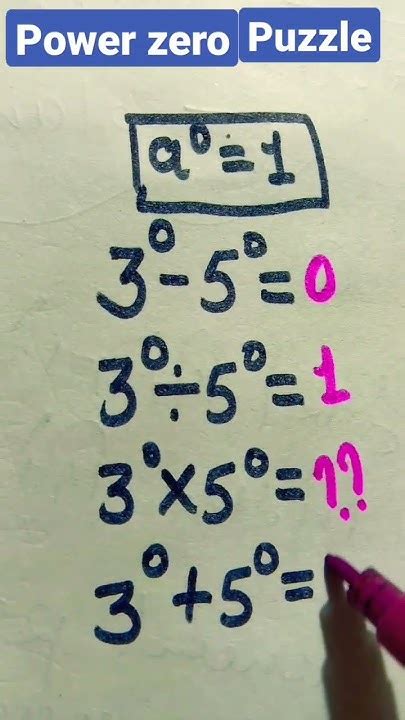 Power zero Puzzle
a⁰=1
3⁰-5⁰=0
3⁰÷5⁰=1
3⁰×5⁰=??
3⁰+5⁰=